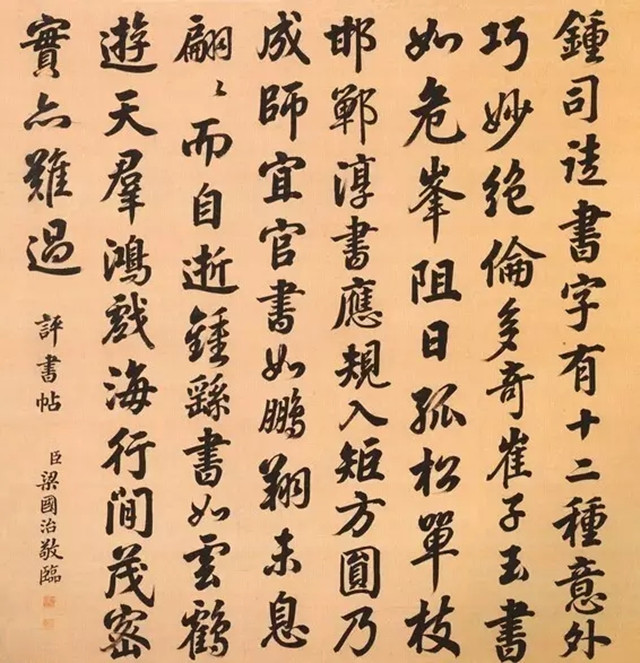 鍾司徒書字有十二種意外
巧妙絶倫多奇崔子玉書
如危峯阻日孤松單枝
邯鄲淳書應規入矩方圓乃
成師宜官書如鵬翔未息
翩〻而自逝鍾繇書如雲鶴
遊天羣鴻戲海行間茂密
實亦難過
評書帖
臣梁國治敬臨